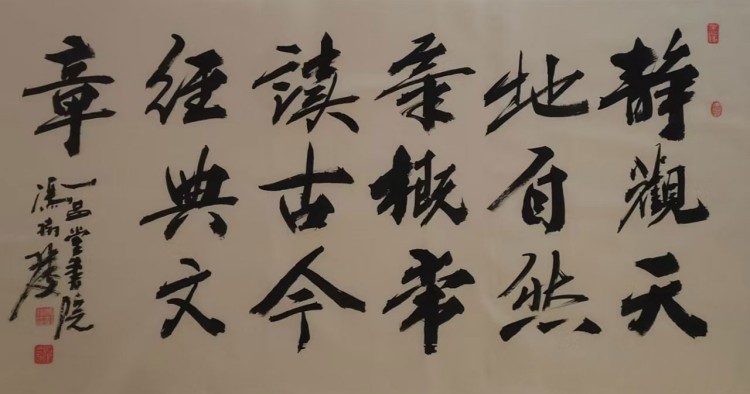 静觀天
地自然
氣概常
讀古今
經典文
章
一品堂書院